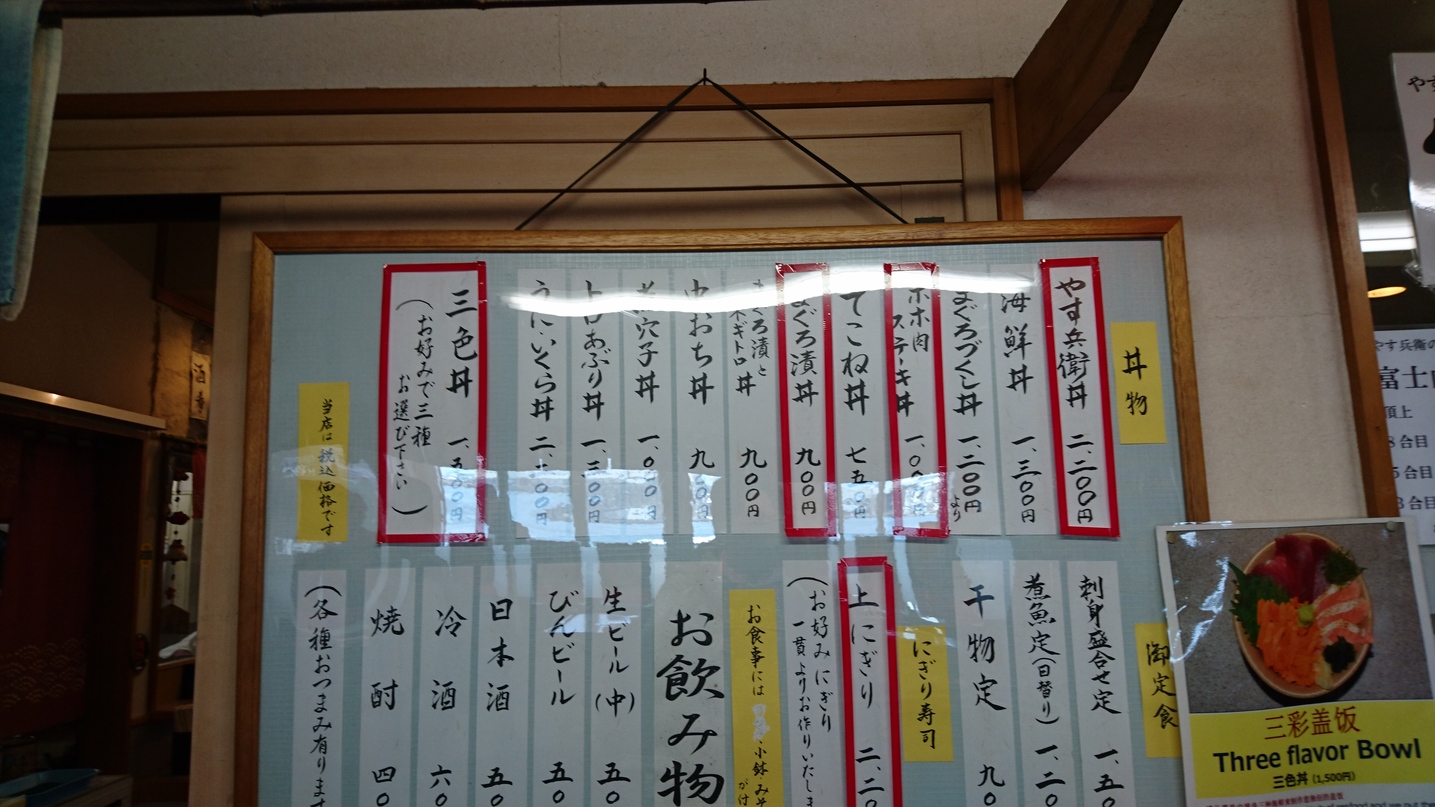 丼物
やす兵衛丼 二、二〇〇円
海鮮丼 一、三〇〇円
まぐろづくし丼 一、二〇〇円より
ホホ肉ステーキ丼 一、〇〇〇円
てこね丼 七五〇円
まぐろ漬丼 九〇〇円
まぐろ漬とネギトロ丼 九〇〇円
中おち丼 九〇〇円
穴子丼 一、〇〇〇円
トロあぶり丼 一、三〇〇円
うにいくら丼 二、
三色丼 一、五〇〇円
(お好みで三種
お選び下さい)
当店は税込価格です
御定食
刺身盛合せ定 一、五
煮魚定(日替り) 一、二〇
干物定 九〇
にぎり寿司
上にぎり 二、二〇
(お好みにぎり
一貫よりお作りいたしま
お食事には 小鉢みそ
が付
お飲み物
生ビール(中) 五〇
びんビール 五〇
日本酒 五〇
冷酒 六〇
焼酎 四〇
(各種おつまみ有ります
酒
やす
やす兵衛の
富士山
頂上
8合目
5合目
3合目
三彩盖饭
Three flavor Bowl
三色丼 (1,500円)